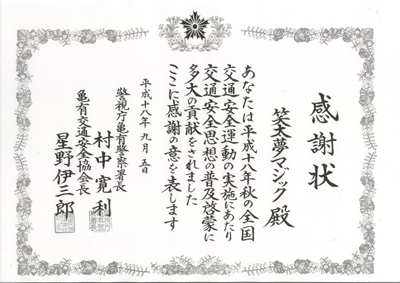 感謝状
笑太夢マジック殿
あなたは平成十八年秋の全国
交通安全運動の実施にあたり
交通安全思想の普及啓蒙に
多大の貢献をされました
ここに感謝の意を表します
平成十八年九月五日
警視庁亀有警察署長
村中寛利
亀有交通安全協会長
星野伊三郎